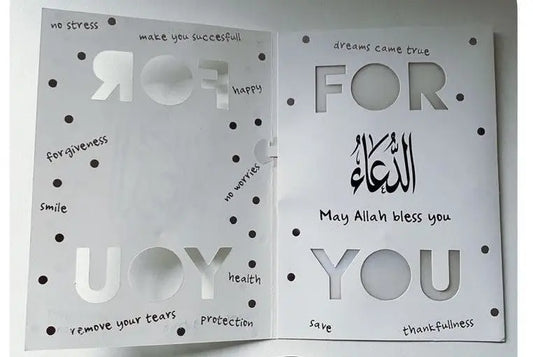 no stress
make you succesfull
FOR
happy
forgiveness
no worries
smile
YOU
health
remove your tears
protection
dreams came true
FOR
الدُّعَاءُ
May Allah bless you
YOU
save
thankfullness